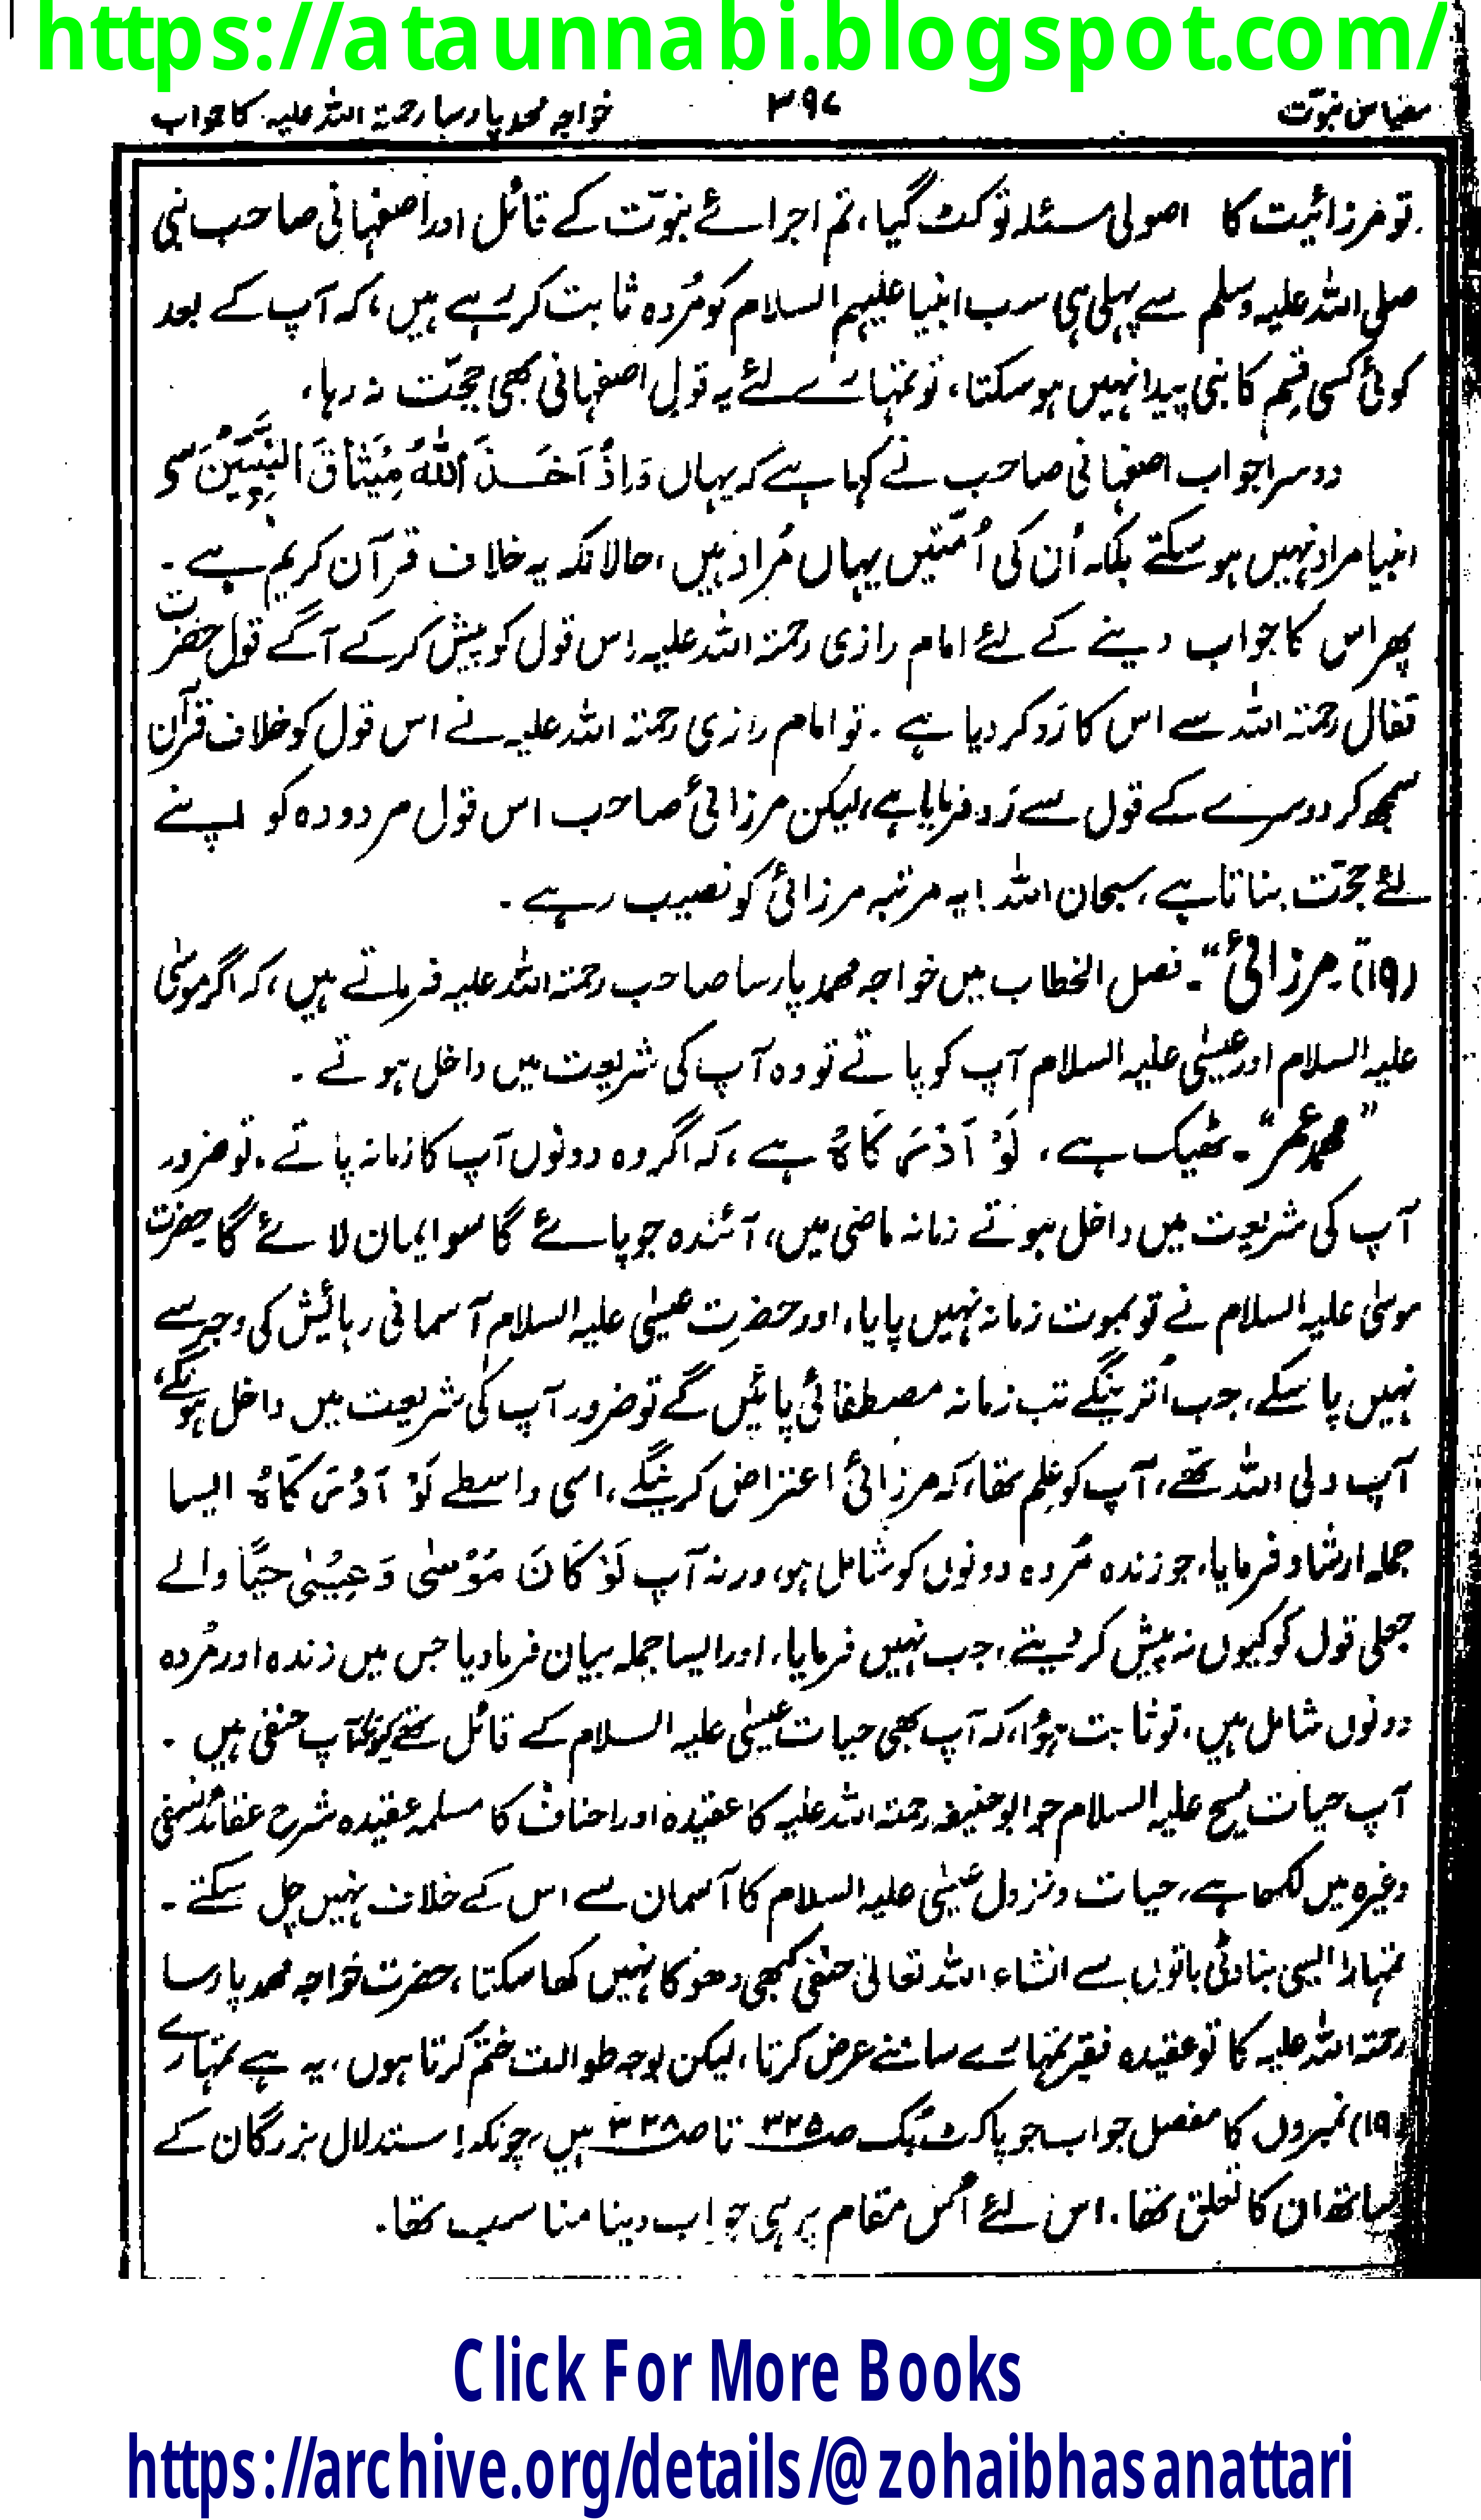 https://ataunnabi.blogspot.com/
مقیاس نبوّت ۳۹۷ خواجہ محمد پارسا رحمۃ اللہ علیہ کا جواب
تو مرزائیت کا اصولی مسئلہ تو کٹ گیا، تم اجرائے نبوّت کے قائل اور اصفہانی صاحب نبی
صلی اللہ علیہ وسلم سے پہلی ہی سب انبیا علیہم السلام کو مُردہ ثابت کر رہے ہیں، کہ آپ کے بعد
کوئی کسی قِسم کا نبی پیدا نہیں ہو سکتا، تو تمہارے لئے یہ قولِ اصفہانی بھی حجّت نہ رہا،
دوسرا جواب اصفہانی صاحب نے کہا ہے کہ یہاں وَاِذْ اَخَـذَ اللّٰهُ مِیْثَاقَ النَّبِیّٖنَ سے
انبیا مراد نہیں ہو سکتے بلکہ اُن کی اُمّتیں یہاں مُراد ہیں، حالانکہ یہ خلاف قرآن کریم ہے ۔
پھر اس کا جواب دینے کے لئے امام رازی رحمۃ اللہ علیہ اس قول کو پیش کر کے آگے قول حضرت
قفال رحمۃ اللہ سے اس کا رَد کر دیا ہے ۔ تو امام رازی رحمۃ اللہ علیہ نے اس قول کو خلاف قرآن
سمجھ کر دوسرے کے قول سے رَد فرمایا ہے، لیکن مرزائی صاحب اس قول مردودہ کو اپنے
لئے حجّت بناتا ہے، سبحان اللہ! یہ مرتبہ مرزائی کو نصیب رہے ۔
(۱۹) "مرزائی"۔ فصل الخطاب میں خواجہ محمد پارسا صاحب رحمۃ اللہ علیہ فرماتے ہیں، کہ اگر موسیٰ
علیہ السلام اور عیسیٰ علیہ السلام آپ کو پاتے تو وہ آپ کی شریعت میں داخل ہوتے ۔
"محمد عمر"۔ ٹھیک ہے، لَوْ اَدْرَكَاهُ ہے، کہ اگر وہ دونوں آپ کا زمانہ پاتے ۔ تو ضرور
آپ کی شریعت میں داخل ہوتے زمانہ ماضی میں، آئندہ جو پائے گا سو ایمان لائے گا حضرت
موسیٰ علیہ السلام نے تو بموت زمانہ نہیں پایا، اور حضرتِ عیسیٰ علیہ السلام آسمانی رہائیش کی وجہ سے
نہیں پا سکے، جب اُترینگے تب زمانہ مصطفائی پائیں گے تو ضرور آپ کی شریعت میں داخل ہونگے،
آپ ولی اللہ تھے، آپ کو عِلم تھا، کہ مرزائی اعتراض کرینگے، اسی واسطے لَوْ اَدْرَكَاهُ ایسا
جملہ ارشاد فرمایا، جو زندہ مُردہ دونوں کو شامل ہو، ورنہ آپ لَوْ كَانَ مُوْسٰى وَعِیْسٰى حیًّا والے
جعلی قول کو کیوں نہ پیش کر دیتے، جب نہیں فرمایا، اور ایسا جملہ بیان فرما دیا جس میں زندہ اور مُردہ
دونوں شامل ہیں، تو ثابت ہؤا، کہ آپ بھی حیات عیسیٰ علیہ السلام کے قائل تھے کیونکہ آپ حنفی ہیں ۔
آپ حیات مسیح علیہ السلام جو ابو حنیفہ رحمۃ اللہ علیہ کا عقیدہ اور احناف کا مسلمہ عقیدہ شرح عقائد نسفی
وغیرہ میں لکھا ہے، حیات و نزول عیسیٰ علیہ السلام کا آسمان سے اس کے خلاف نہیں چل سکتے ۔
تمہارا ایسی بناوٹی باتوں سے انشاء اللہ تعالیٰ حنفی کبھی دھوکا نہیں کھا سکتا، حضرت خواجہ محمد پارسا
رحمۃ اللہ علیہ کا تو عقیدہ فقیر تمہارے سامنے عرض کرتا، لیکن بوجہ طوالت ختم کرتا ہوں، یہ ہے تمہارے
(۱۹) نمبروں کا مفصل جواب جو پاکٹ بُک صـ۳۲۵ تا صـ۳۳۸ ہیں، چونکہ استدلال بزرگان کے
ساتھ ان کا تعلق تھا، اس لئے اُس مقام پر ہی جواب دینا مناسب تھا۔
Click For More Books
https://archive.org/details/@zohaibhasanattari